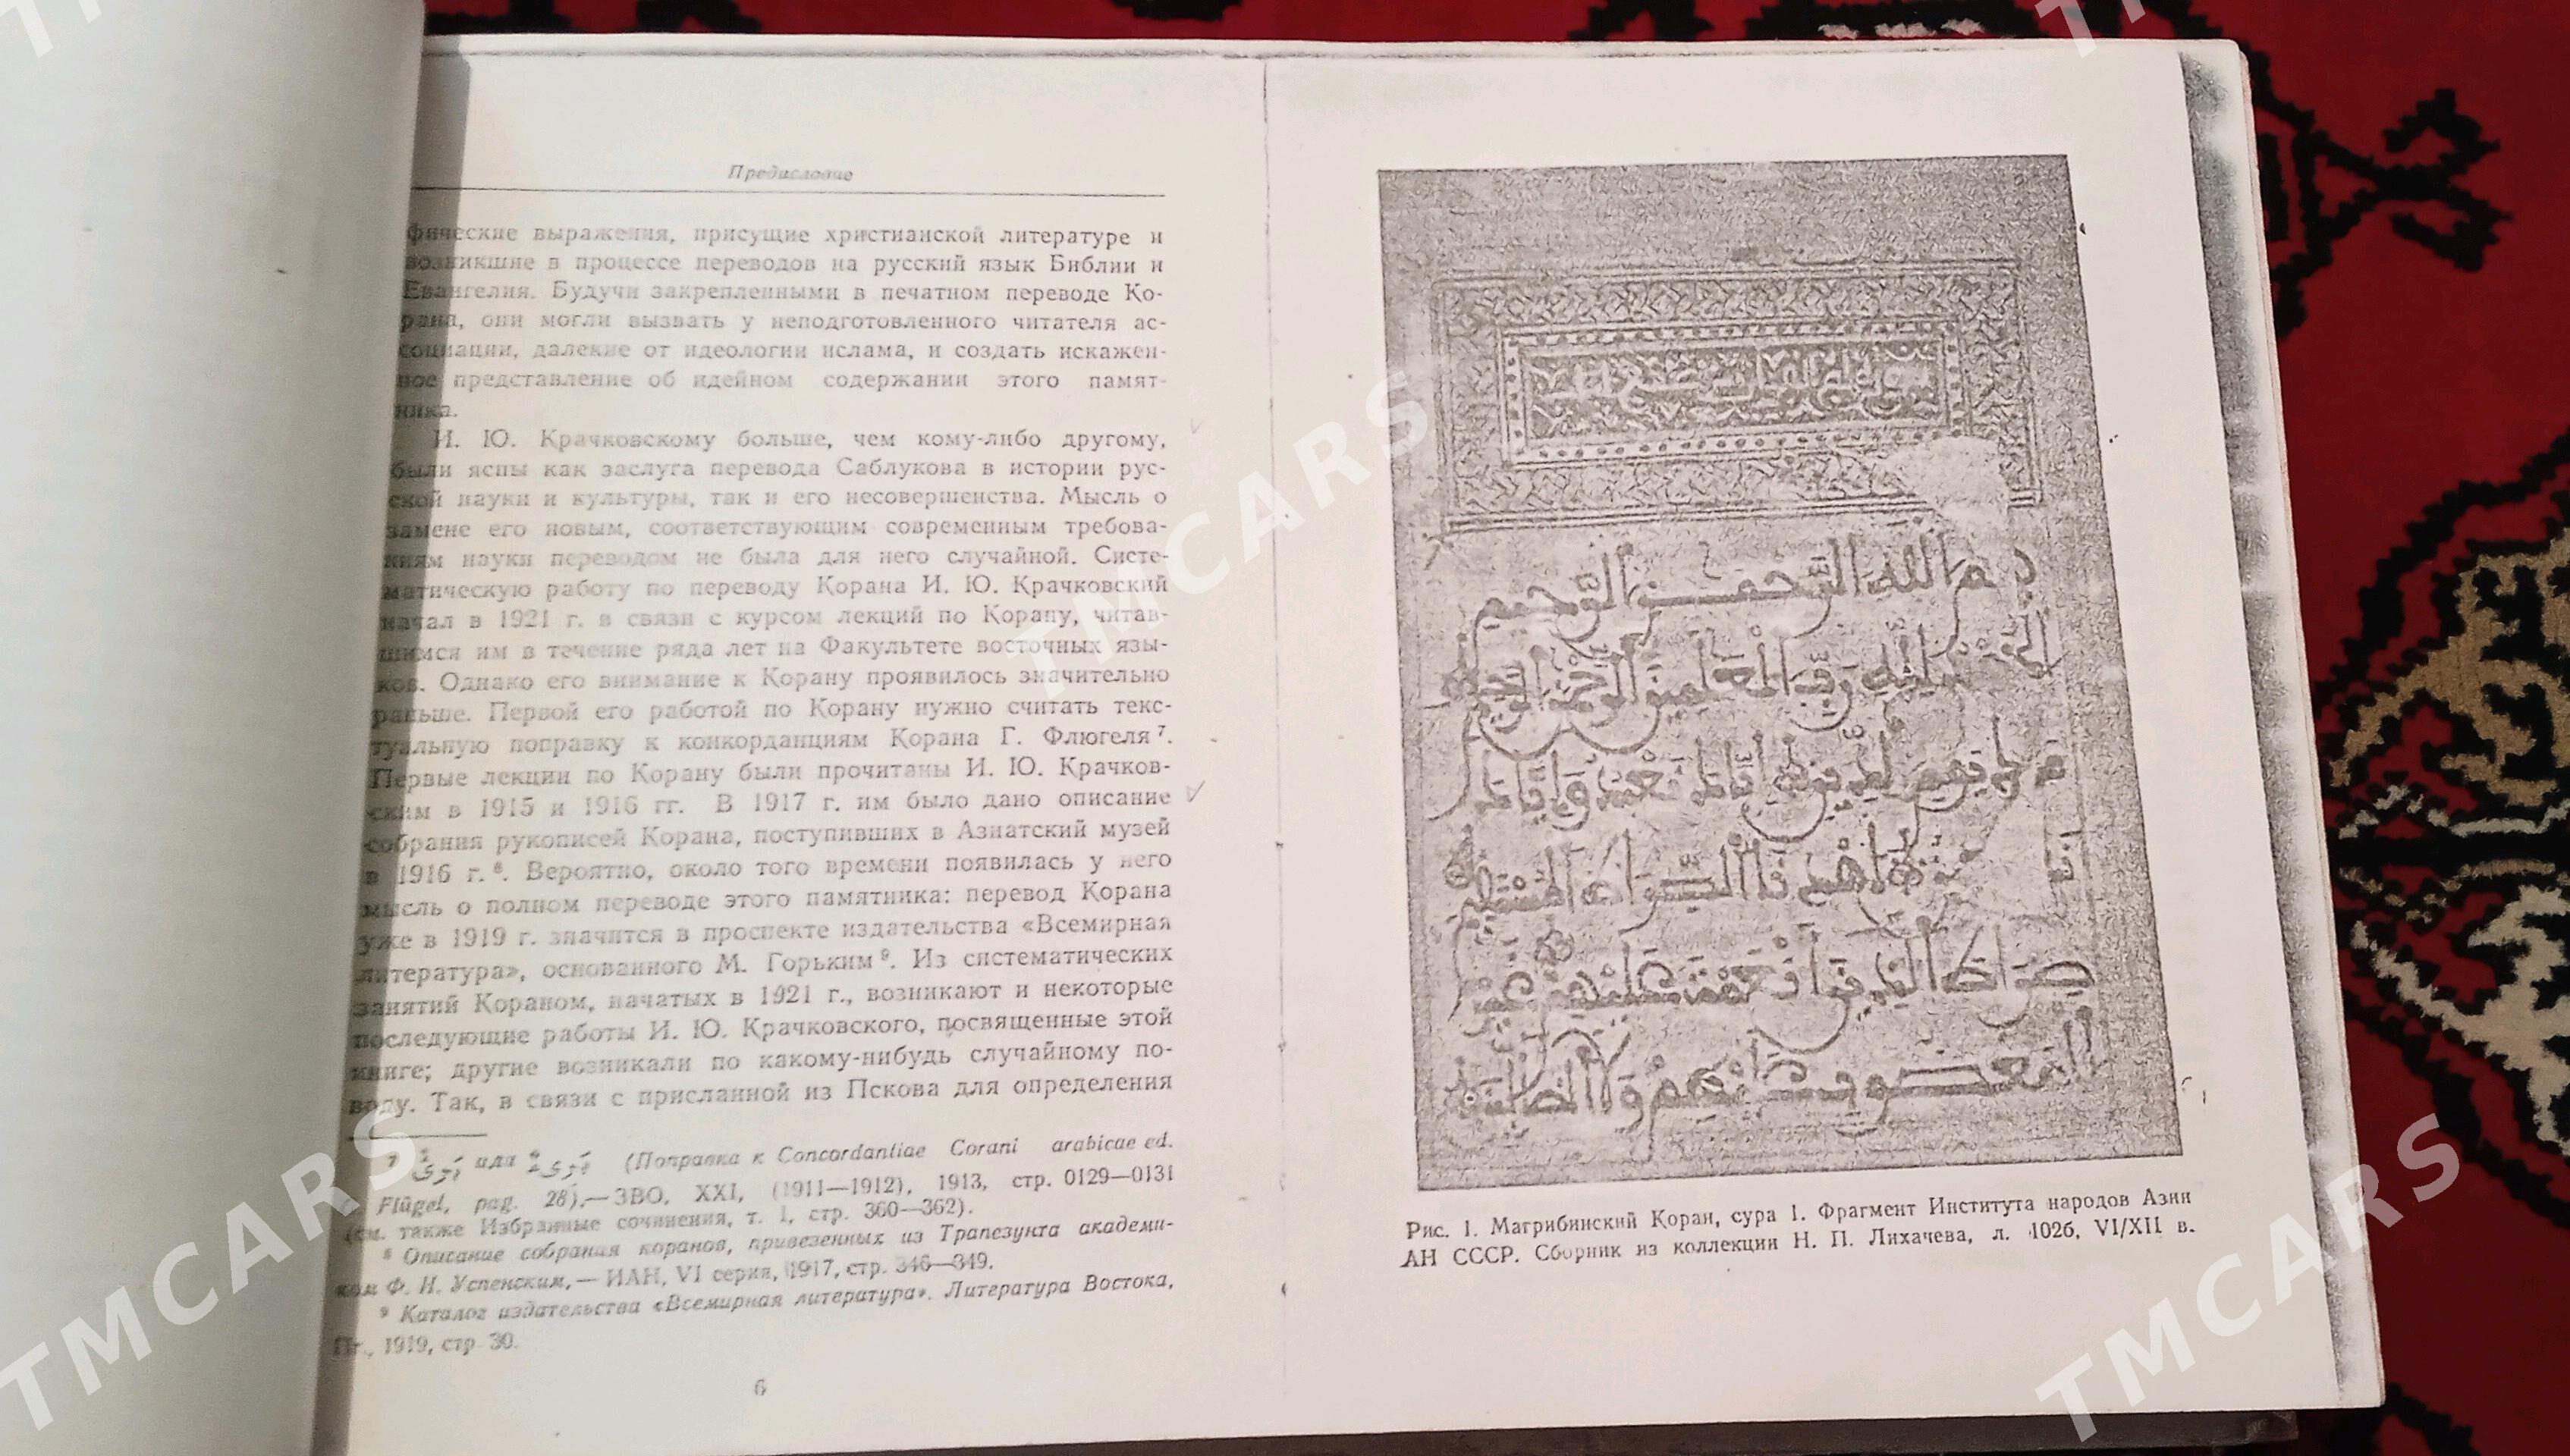 Предисловие
фические выражения, присущие христианской литературе и
возникшие в процессе переводов на русский язык Библии и
Евангелия. Будучи закрепленными в печатном переводе Ко-
рана, они могли вызвать у неподготовленного читателя ас-
социации, далекие от идеологии ислама, и создать искажен-
ное представление об идейном содержании этого памят-
ника.
И. Ю. Крачковскому больше, чем кому-либо другому,
были ясны как заслуга перевода Саблукова в истории рус-
ской науки и культуры, так и его несовершенства. Мысль о
замене его новым, соответствующим современным требова-
ниям науки переводом не была для него случайной. Систе-
матическую работу по переводу Корана И. Ю. Крачковский
начал в 1921 г. в связи с курсом лекций по Корану, читав-
шимся им в течение ряда лет на Факультете восточных язы-
ков. Однако его внимание к Корану проявилось значительно
раньше. Первой его работой по Корану нужно считать текс-
туальную поправку к конкорданциям Корана Г. Флюгеля 7.
Первые лекции по Корану были прочитаны И. Ю. Крачков-
ским в 1915 и 1916 гг. В 1917 г. им было дано описание
собрания рукописей Корана, поступивших в Азиатский музей
в 1916 г. 8. Вероятно, около того времени появилась у него
мысль о полном переводе этого памятника: перевод Корана
уже в 1919 г. значится в проспекте издательства «Всемирная
литература», основанного М. Горьким 9. Из систематических
занятий Кораном, начатых в 1921 г., возникают и некоторые
последующие работы И. Ю. Крачковского, посвященные этой
книге; другие возникали по какому-нибудь случайному по-
воду. Так, в связи с присланной из Пскова для определения
7 или (Поправка к Concordantiae Corani arabicae ed.
Flügel, pag. 28),— ЗВО, XXI, (1911—1912), 1913, стр. 0129—0131
(см. также Избранные сочинения, т. 1, стр. 360—362).
8 Описание собрания коранов, привезенных из Трапезунта академи-
ком Ф. И. Успенским,— ИАН, VI серия, 1917, стр. 346—349.
9 Каталог издательства «Всемирная литература». Литература Востока,
Пг., 1919, стр. 30.
6
الرحمن الرحيم
Рис. 1. Магрибинский Коран, сура 1. Фрагмент Института народов Азии
АН СССР. Сборник из коллекции Н. П. Лихачева, л. 102б, VI/XII в.
TMCARS
TMCARS
TMCARS